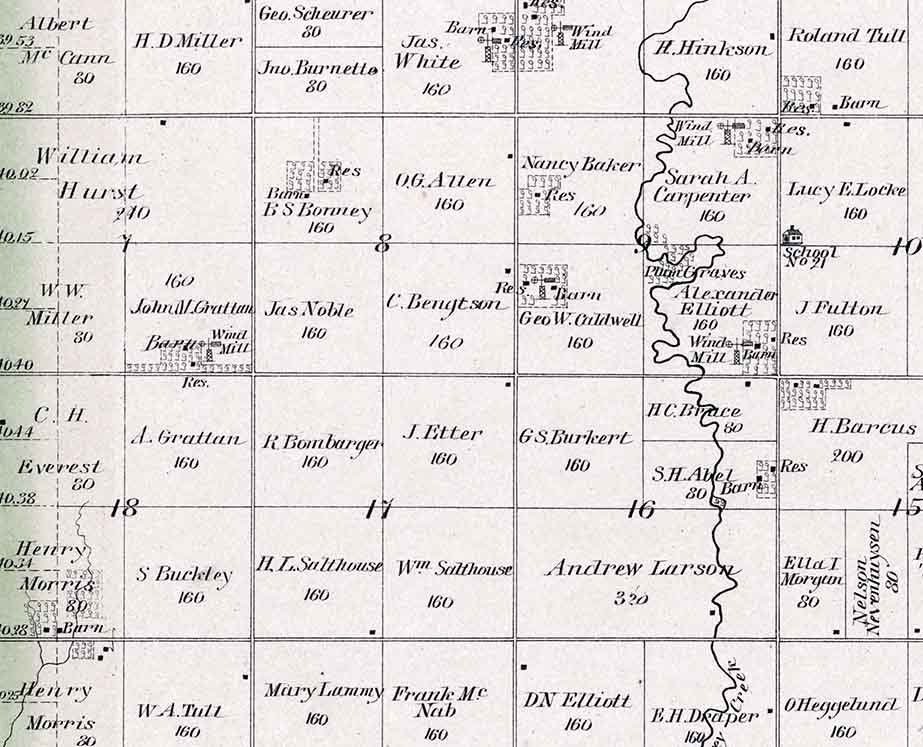 Albert
39.53
Mc Cann
80
39.82
H. D Miller
160
Geo. Scheurer
80
Jno. Burnette
80
Jas.
White
160
Barn
Res.
Res.
Wind
Mill
H. Hinkson
160
Roland Tull
160
Res.
Barn
William
40.02
Hurst
240
40.15
7
Res
Barn
B S Bonney
160
O.G. Allen
160
8
Nancy Baker
Res
160
Wind
Mill
Res.
Barn
Sarah A.
Carpenter
160
9
Lucy E. Locke
160
School
No 21
10
W. W.
40.27
Miller
80
40.40
160
John M. Grattan
Barn
Wind
Mill
Res.
Jas Noble
160
C. Bengtson
160
Res
Barn
Geo W. Caldwell
160
Plum Graves
Alexander
Elliott
160
Wind
Mill
Barn
J Fulton
Res
160
C. H.
40.44
Everest
80
40.38
18
A. Grattan
160
R Bombarger
160
J. Etter
160
17
G.S. Burkert
160
H C. Bruce
80
S.H. Abel
80
Barn
16
H. Barcus
200
Res
15
Henry
40.34
Morris
80
40.28
Barn
S Buckley
160
H. L. Salthouse
160
Wm Salthouse
160
Andrew Larson
320
Ella I
Morgan
80
Nelson
Nevenhuysen
80
Henry
Morris
80
W. A. Tull
160
Mary Lammy
160
Frank Mc
Nab
160
D N Elliott
160
E. H. Draper
160
Creek
O Heggelund
160